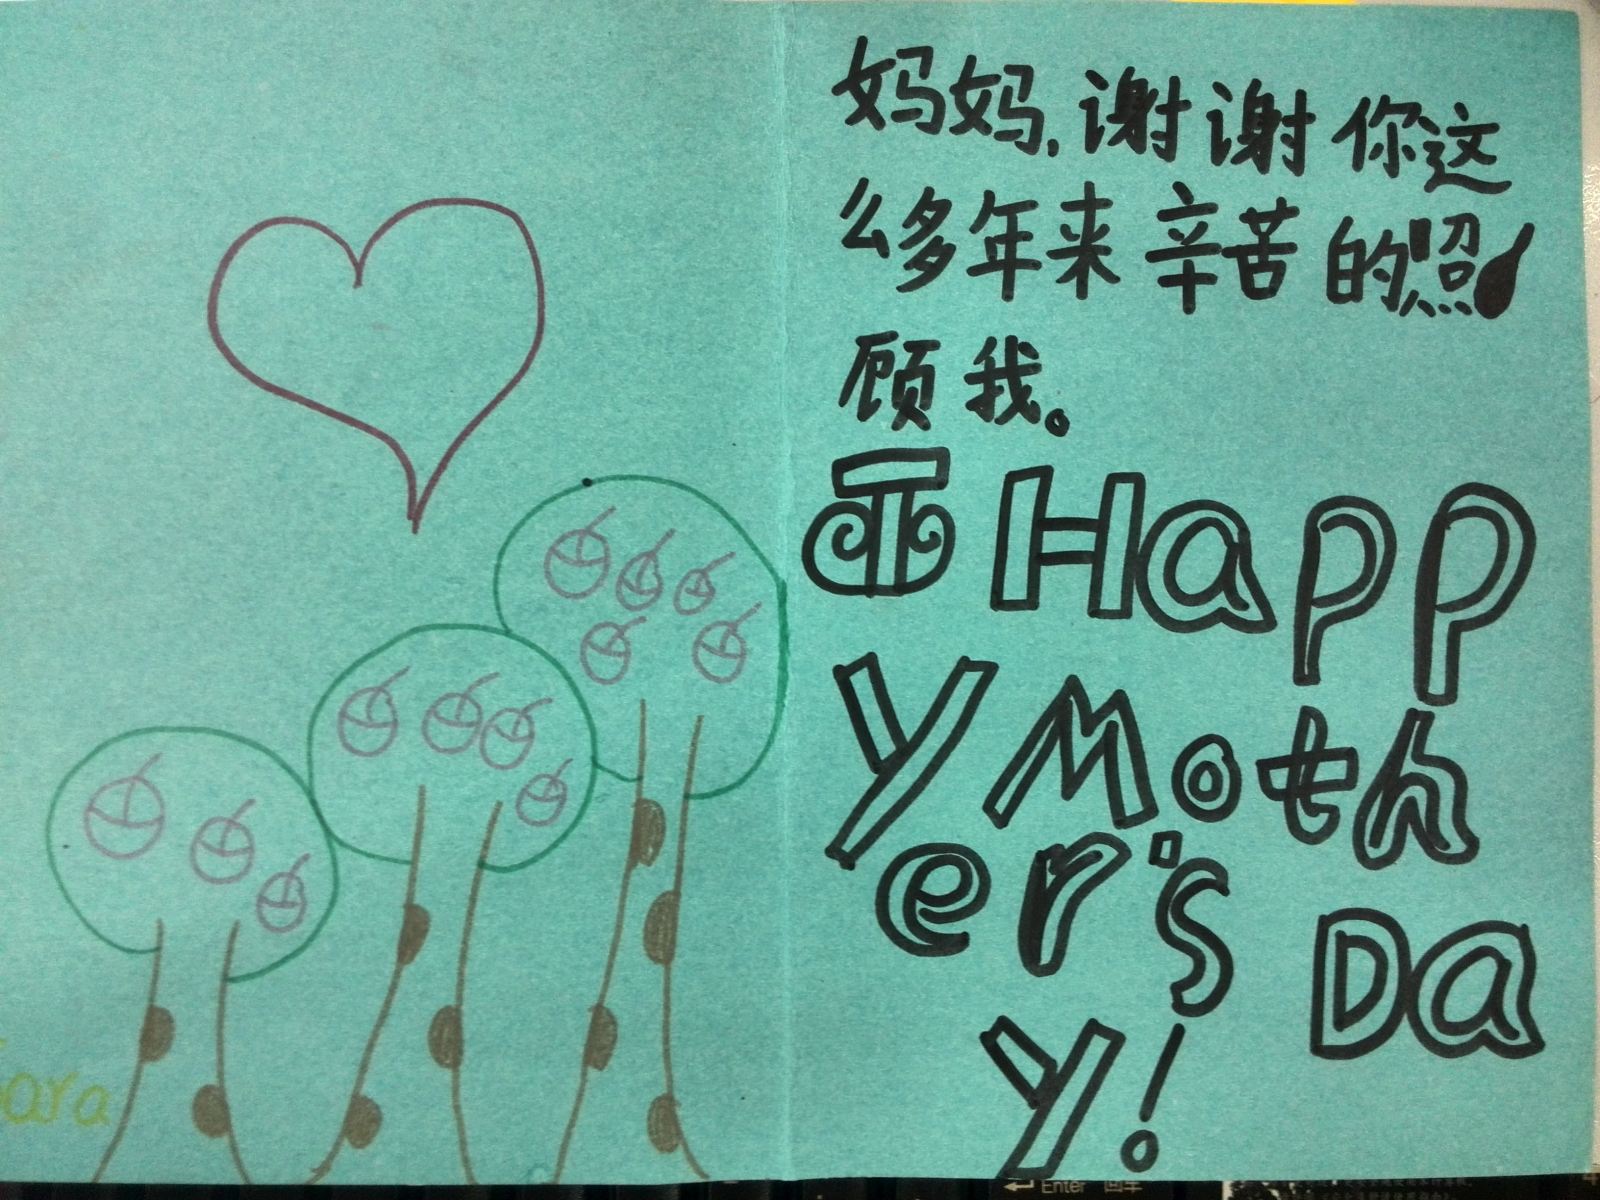 妈妈,谢谢你这
么多年来辛苦的照
顾我。
Happ
y Moth
er's
Da
y!
ara
Enter 回车